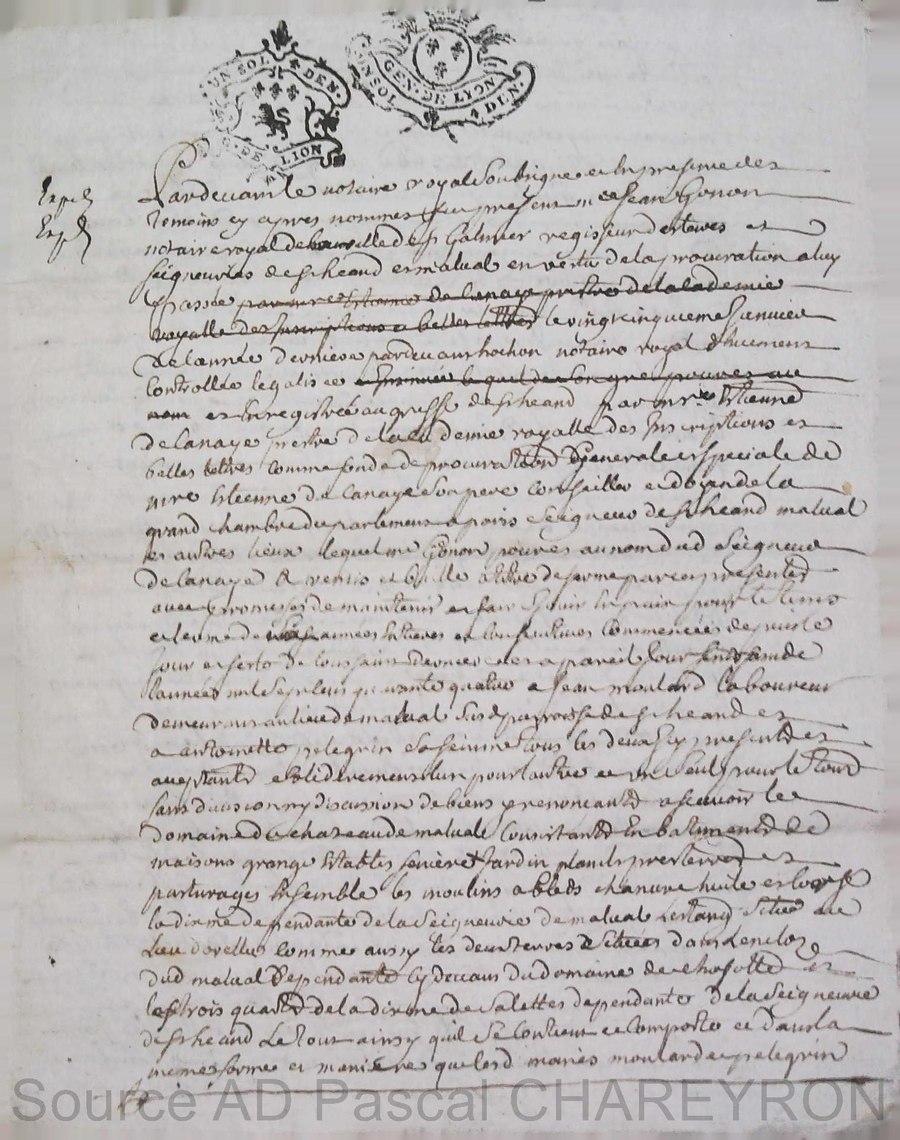 UN SOL DEN.
G. DE LION
UN SOL DEN.
GEN. DE LYON
Exped
Exp
Pardevant le notaire royal soubsigne et en presence des
temoins cy apres nommes fut present me Jean Gonon
notaire royal de la ville de st Galmier regisseur des terres et
seigneuries de st heand et malual en vertu de la procuration a luy
passée par mre Estienne de Canaye prestre de lacademie
royalle des Inscriptions et belles lettres le vingt cinquieme Janvier
de lannée derniere pardevant hochon notaire royal
controllée legalisée et Insinuée lequel de son gre pouvoir au
nom et Enregistrée au greffe de st heand par mre Estienne
de Canaye prestre de lacademie royalle des Inscriptions et
belles lettres comme fondé de procuration generale et speciale de
mre Estienne de Canaye son pere conseiller et doyen de la
grand chambre du parlement a paris Seigneur de st heand malual
et autres lieux lequel me Gonon pouvoir au nom dud Seigneur
de Canaye a remis et baille a titre de ferme par ces presentes
avec promesses de maintenir et faire jouir en paix pour le tems
et terme de années entieres et consecutives commencées depuis le
jour et feste de toussaints derniere et a pareil jour
lannée mil sept cens quarante quatre a Jean moulard laboureur
demeurant au lieu de malual susd parroisse de st heand et
a antoinette pelegrin sa femme tous les deux cy presents et
acceptants solidairement lun pour lautre et un seul pour le tout
sans division ny discussion de biens y renonceants a scavoir le
domaine du chateau de malual consistant En batiments de
maisons grange Etables feniere Jardin preds terres et
pasturages Ensemble les moulins a bleds chanvre huile et
la dixme dependante de la Seigneurie de malual Lestang Situé au
Lieu dorellus comme aussy les deux terres Situées dans lenclos
dud malual Dependantes cy devant du domaine de et
les trois quarts de la dixme de salettes dependante de la seigneurie
de st heand Le tout ainsy quil se contient et comporte et dans la
meme forme et maniere que lesd mariés moulard et pelegrin
Source AD Pascal CHAREYRON